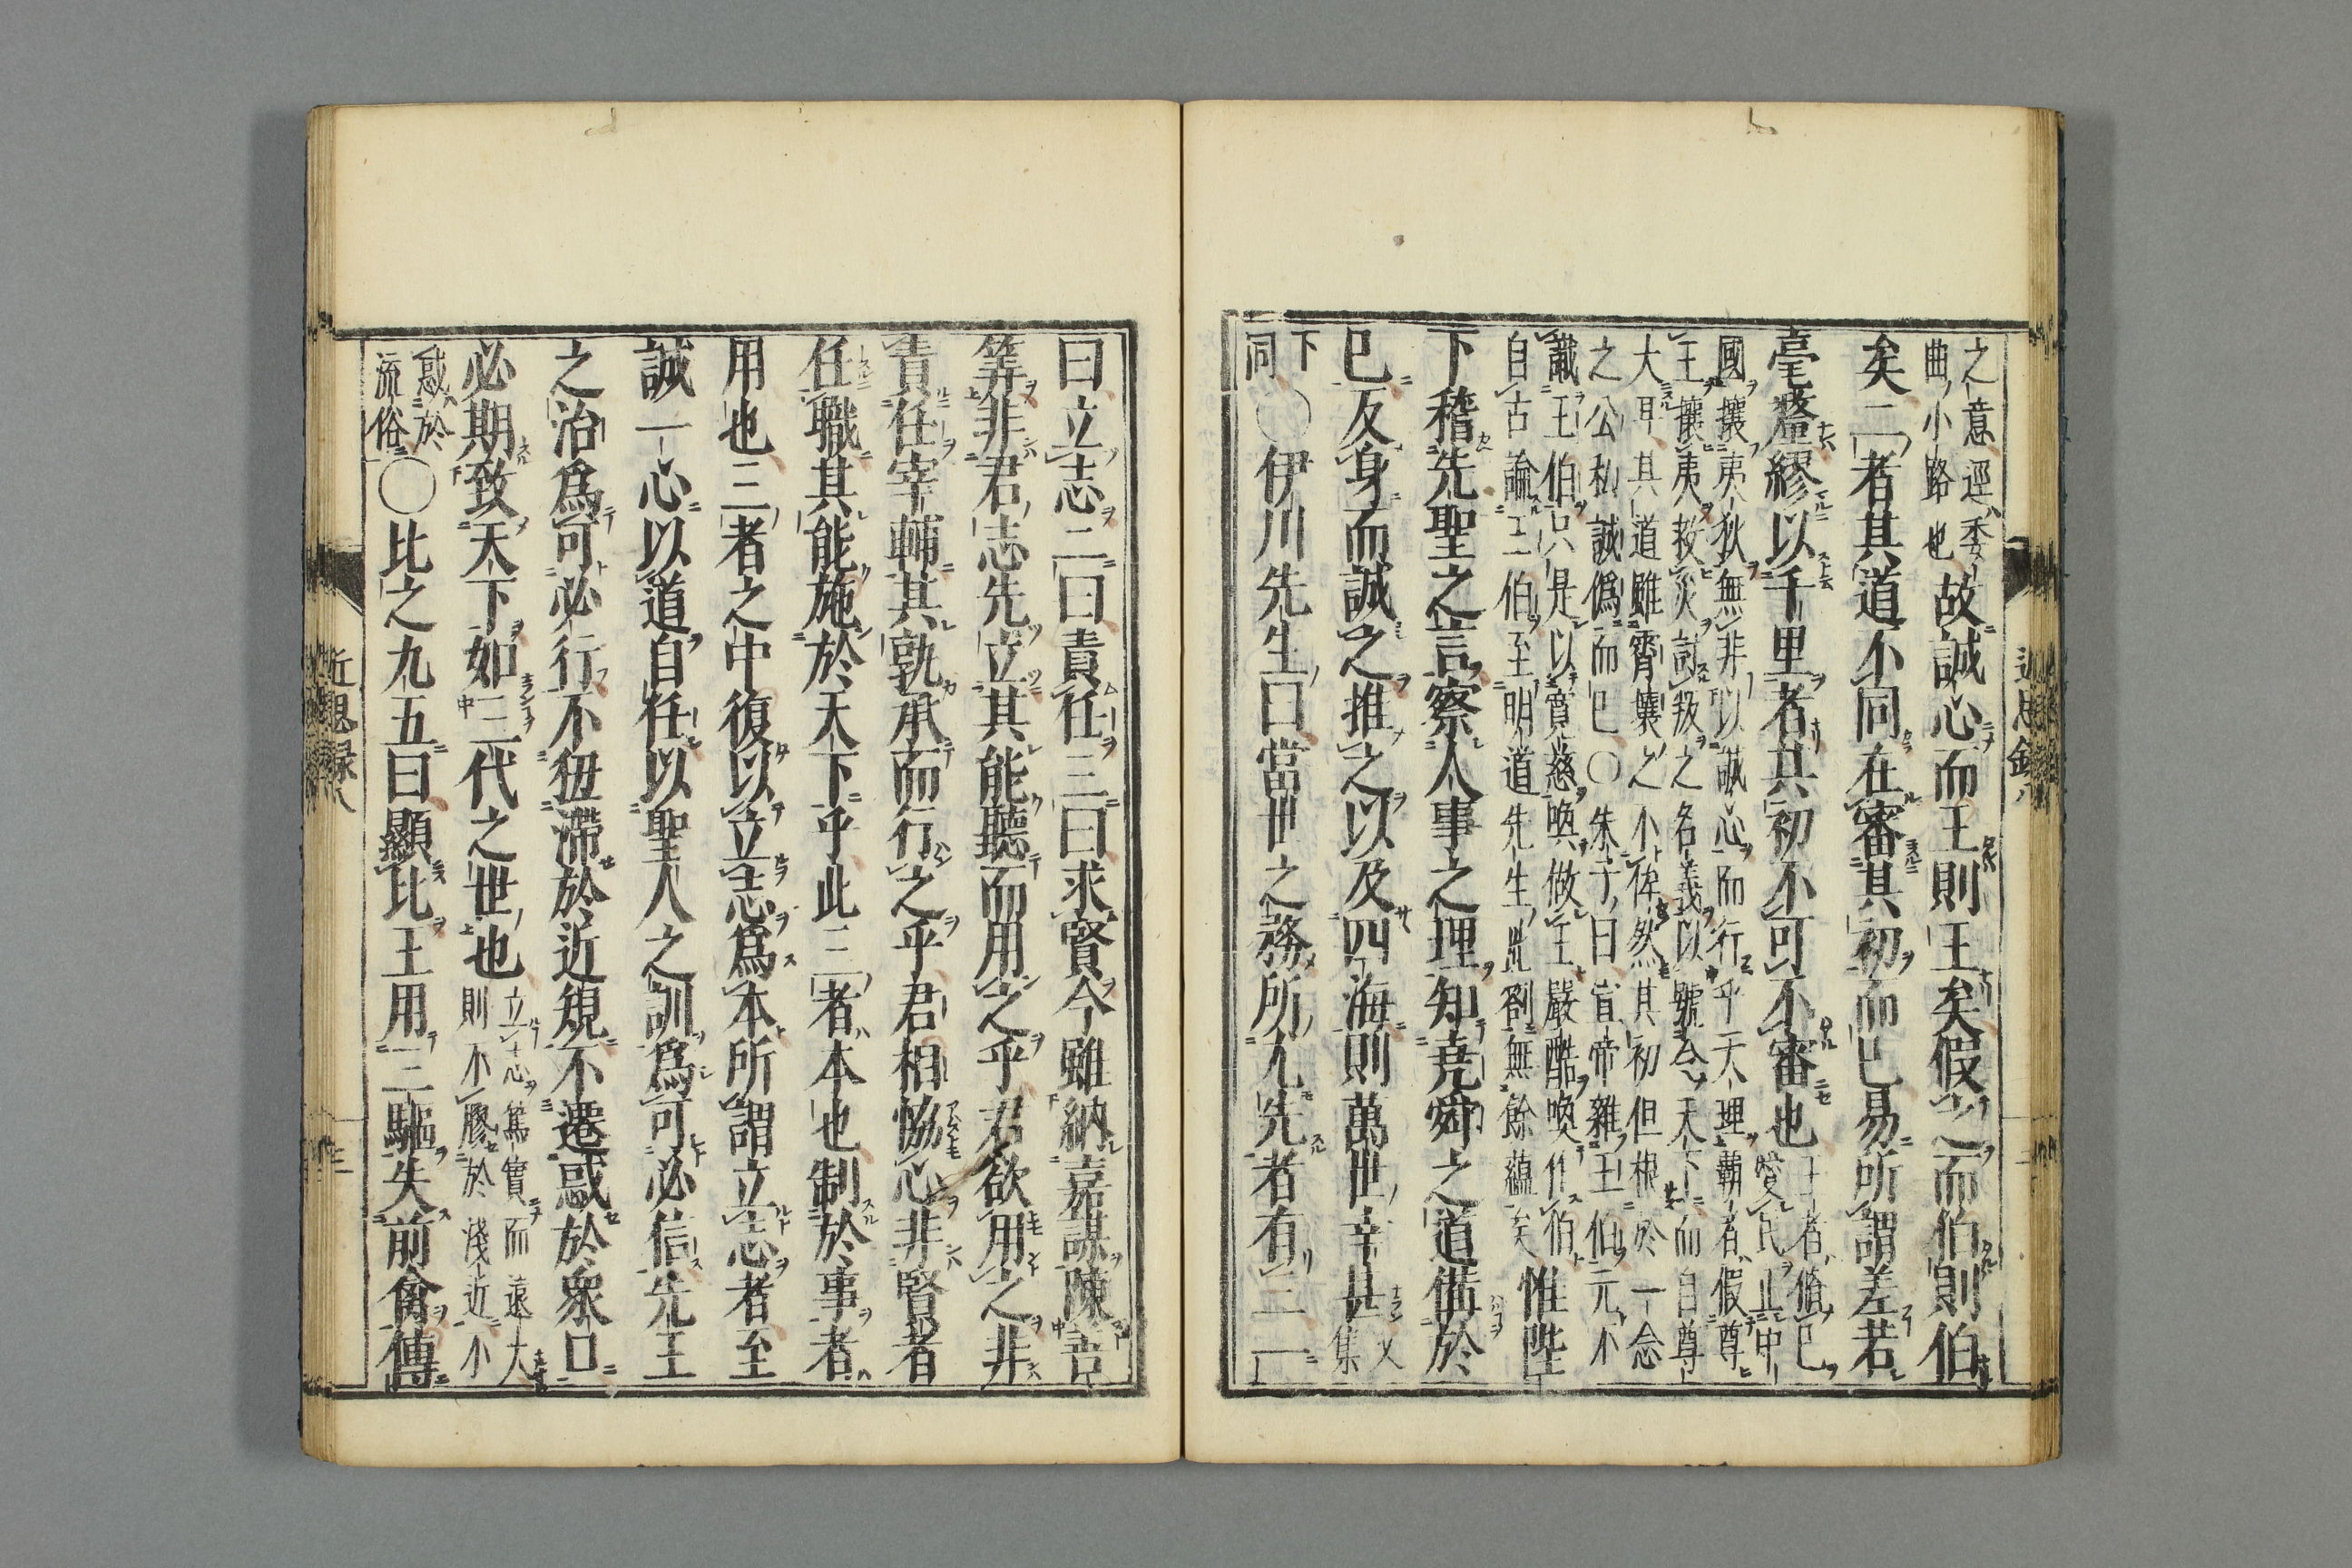 之意逕委
曲小路也
故誠心而王則王矣假之而伯則伯
矣二者其道不同在審其初而已易所謂差若
毫釐繆以千里者其初不可不審也
王者脩己
愛民正中
國攘夷狄無非以誠心而行乎天理霸者假尊
王攘夷救災討叛之名義以號令天下而自尊
大耳其道雖霄壤之不侔然其初但根於一念
之公私誠僞而已○朱子曰宣帝雜王伯元不
識王伯只是以寬慈喚做王嚴酷喚作伯
自古論王伯至明道先生此劄無餘蘊矣
惟陛
下稽先聖之言察人事之理知堯舜之道備於
已反身而誠之推之以及四海則萬世幸甚
文
集
下
同
○伊川先生曰當世之務所尤先者有三一
曰立志二曰責任三曰求賢今雖納嘉謀陳善
筭非君志先立其能聽而用之乎君欲用之非
責任宰輔其孰承而行之乎君相恊心非賢者
任職其能施於天下乎此三者本也制於事者
用也三者之中復以立志爲本所謂立志者至
誠一心以道自任以聖人之訓爲可必信先王
之治爲可必行不狃滯於近規不遷惑於衆口
必期致天下如三代之世也
立志篤實而遠大
則不膠於淺近小
惑於
流俗
○比之九五曰顯比王用三驅失前禽傳
近思録八
三